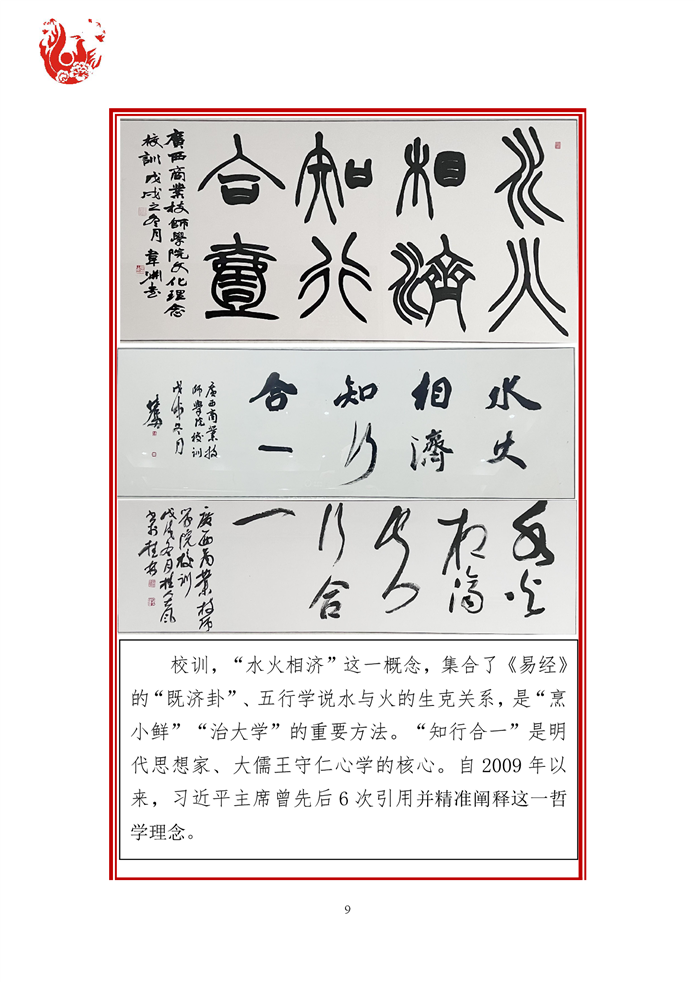 水火
相濟
知行
合壹
廣西商業技師學院文化理念
校訓戊戌之冬月韋淵書
水火
相濟
知行
合一
廣西商業技
師學院校训
戊戌冬月
水火
相濟
知
行合
一
廣西商業技师
学院校训
戊戌冬月
校训，“水火相济”这一概念，集合了《易经》
的“既济卦”、五行学说水与火的生克关系，是“烹
小鲜”“治大学”的重要方法。“知行合一”是明
代思想家、大儒王守仁心学的核心。自 2009 年以
来，习近平主席曾先后 6 次引用并精准阐释这一哲
学理念。
9